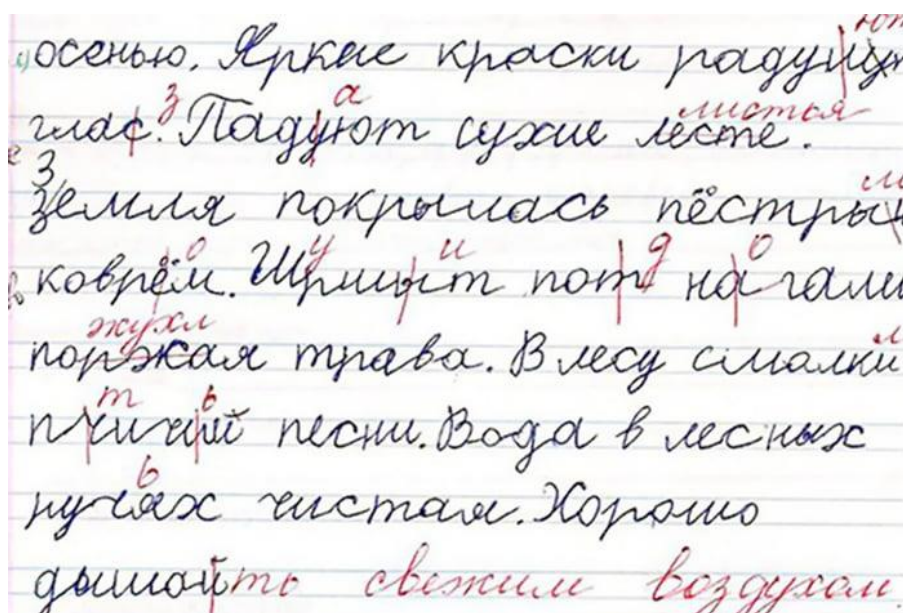 осенью. Яркие краски радуют
глас. з Падуют а сухие лесте. листья
Земля покрылась пёстрым
коврём. о Шрмшыт у и пот д на о гами
поржкая жухл трава. В лесу смолкли
пчичий т ь песни. Вода в лесных
нучях ь чистая. Хорошо
дышать свежим воздухом.